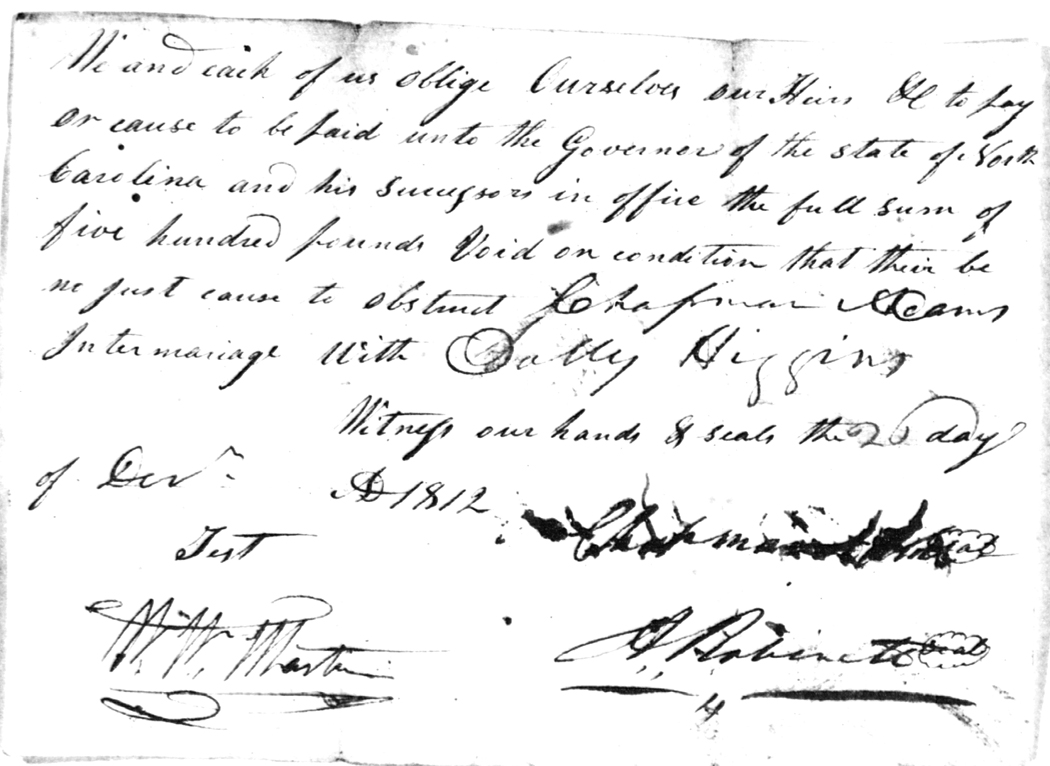 We and each of us oblige Ourselves our Heirs &c to pay
or cause to be paid unto the Governor of the state of North
Carolina and his successors in office the full sum of
five hundred pounds Void on condition that their be
no just cause to obstruct Chapman Adams
Intermariage With Sally Higgins
Witness our hands & seals the 26 day
of Decr. AD 1812
Test Chapman seal
W. W. Martin A. Robinett seal